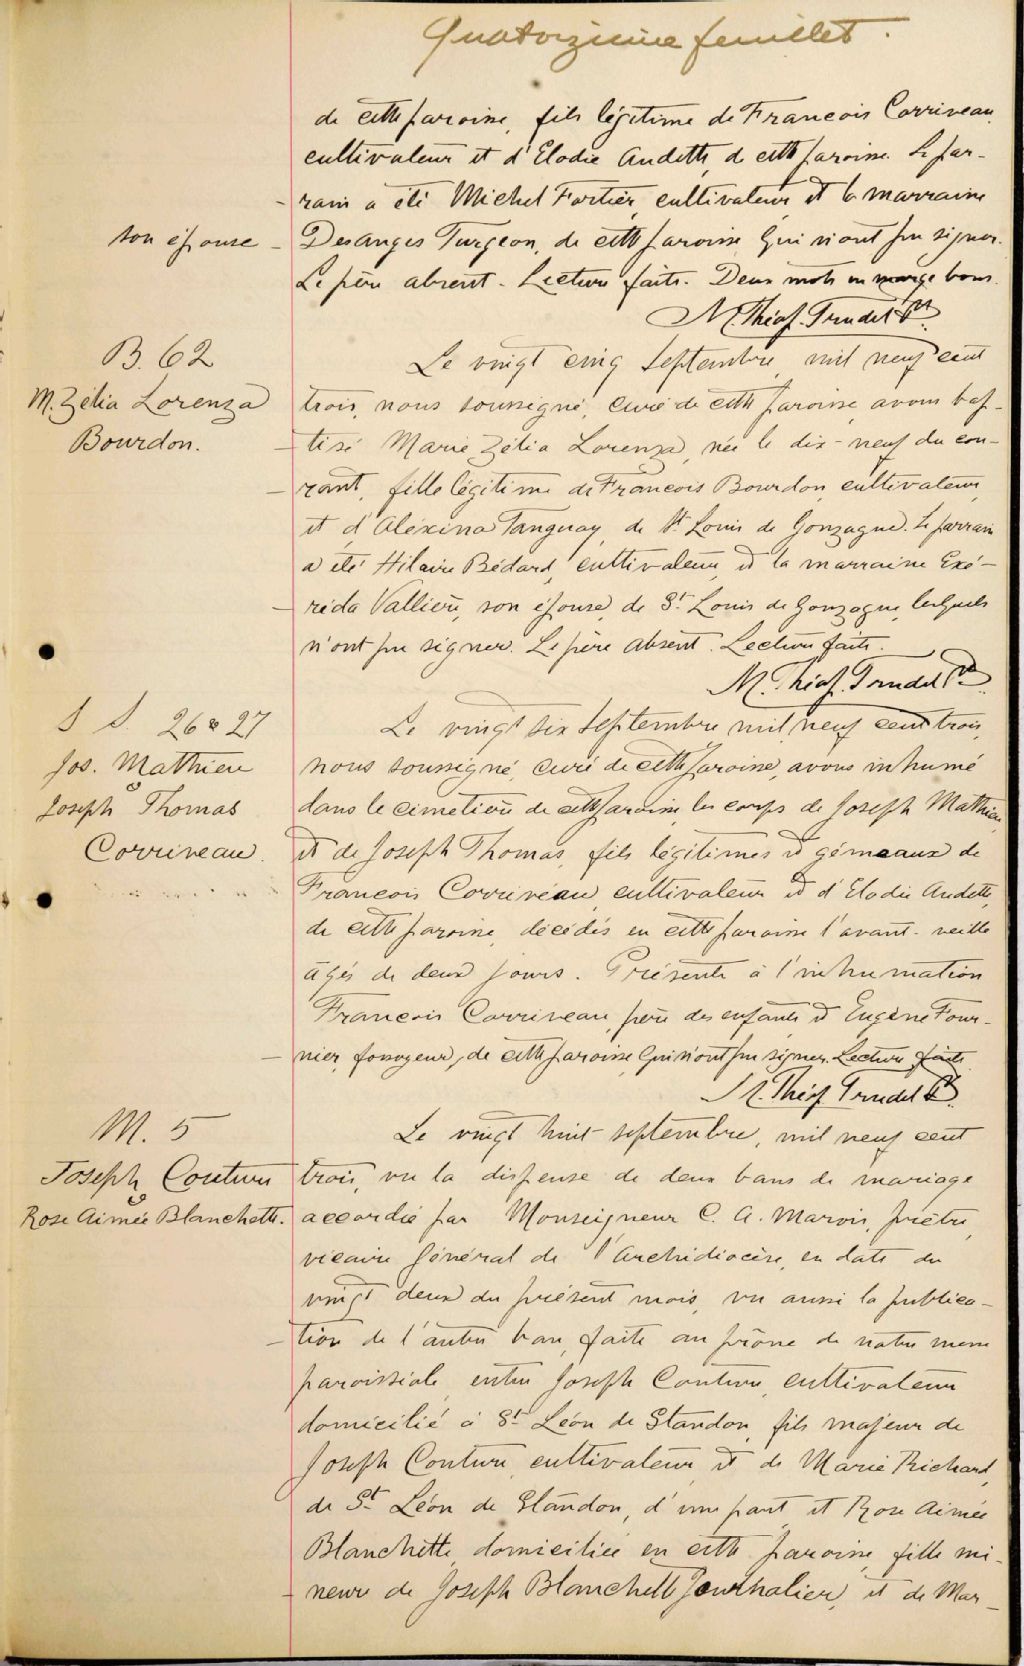 Quatorzieme feuillet.
de cette paroisse, fils légitime de Francois Corriveau
cultivateur et d'Elodie Audette, de cette paroisse. Le par-
rain a été Michel Fortier, cultivateur et la marraine
son épouse - Desanges Turgeon, de cette paroisse qui n'ont pu signer.
Le père absent. Lecture faite. Deux mots en marge bons.
M. Théof. Trudel Ptr.
B. 62
M. Zélia Lorenza
Bourdon.
Le vingt cinq septembre mil neuf cent
trois, nous soussigné, curé de cette paroisse avons bap-
tisé Marie Zélia Lorenza, née le dix-neuf du cou-
rant, fille légitime de Francois Bourdon, cultivateur,
et d'Aléxina Tanguay, de St Louis de Gonzague. Le parrain
a été Hilaire Bédard, cultivateur, et la marraine Exé-
rida Vallière, son épouse, de St. Louis de Gonzague, lesquels
n'ont pu signer. Le père absent. Lecture faite.
M. Théof. Trudel Ptr.
S S. 26 & 27
Jos. Mathieu
&
Joseph Thomas
Corriveau.
Le vingt six septembre mil neuf cent trois,
nous soussigné, curé de cette paroisse, avons inhumé
dans le cimetière de cette paroisse les corps de Joseph Mathieu
et de Joseph Thomas, fils légitimes et gémeaux de
Francois Corriveau cultivateur et d'Elodie Audette,
de cette paroisse, décédés en cette paroisse l'avant-veille
âgés de deux jours. Présents à l'inhumation
Francois Corriveau, père des enfants et Eugène Four-
nier, fossoyeur, de cette paroisse qui n'ont pu signer. Lecture faite.
M. Théof. Trudel Ptr.
M. 5
Joseph Couture
&
Rose Aimée Blanchette.
Le vingt huit septembre, mil neuf cent
trois, vu la dispense de deux bans de mariage
accordée par Monseigneur C. A. Marois, prêtre,
vicaire général de l'Archidiocèse, en date du
vingt deux du présent mois, vu aussi la publica-
tion de l'autre ban, faite au prône de notre messe
paroissiale entre Joseph Couture, cultivateur
domicilié à St Léon de Standon, fils majeur de
Joseph Couture, cultivateur et de Marie Richard,
de St. Léon de Standon, d'une part, et Rose Aimée
Blanchette, domiciliée en cette paroisse, fille mi-
neure de Joseph Blanchette Journalier, et de Mar-